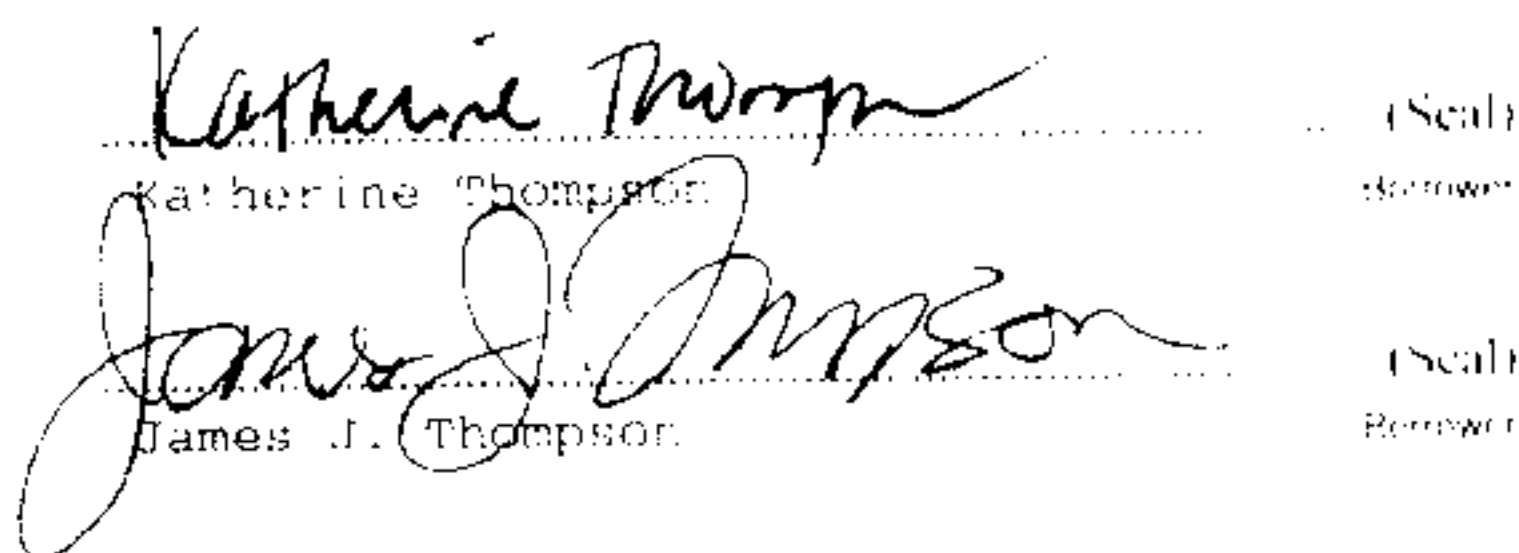 Katherine Thomp (Seal)
Katherine Thompson Borrower
James J. Thompson (Seal)
James J. Thompson Borrower